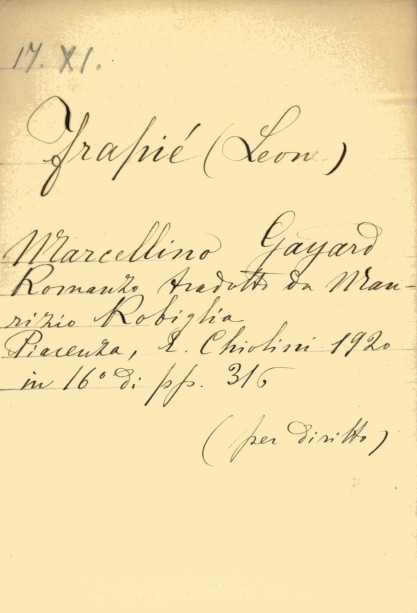 17. XI.
Frapié (Leon)
Marcellino Gayard
Romanzo tradotto da Mau-
rizio Robiglia
Piacenza, E. Chiolini 1920
in 16° di pp. 316
(per diritto)